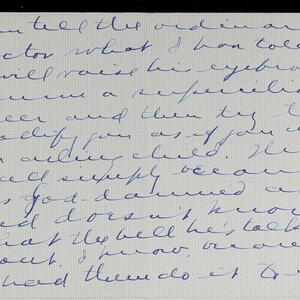 tell the ordinar
ctor what I have told
will raise his eyebro
assume a supercilious
eer and then try to
odify you as if you w
an ailing child. He
ad simply because
s god damned
nd doesn't know
hat the hell he's talk
out. I know, because
had them do it to